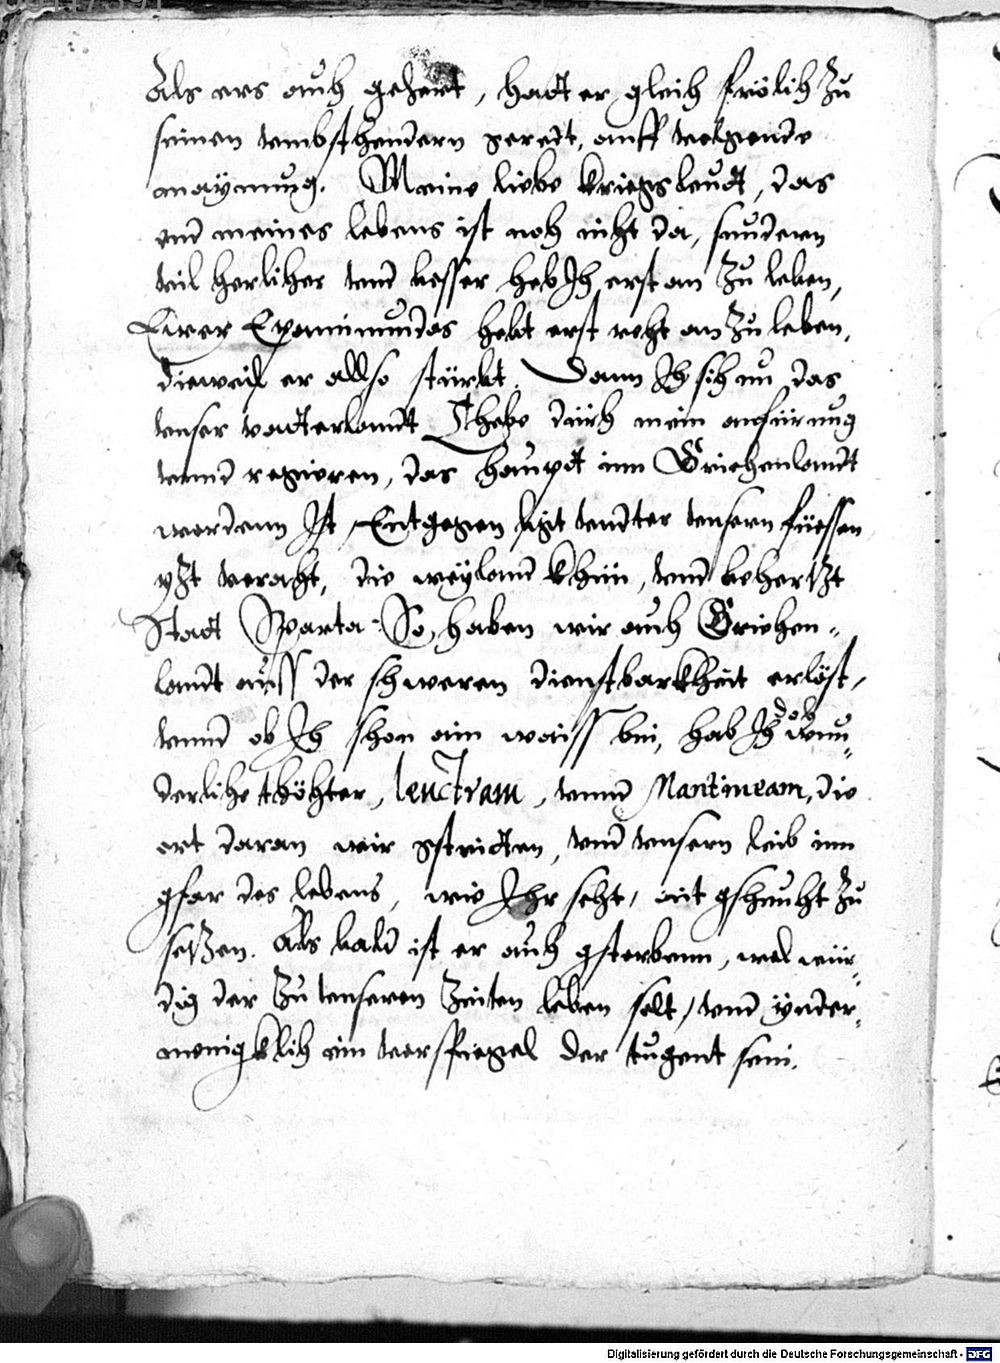 Als ers auch gehert, hadt er gleich frölich zu
seinen vmbsthendern geredt, auff volgende
maynung. Meine liebe kriegsleudt, das
end meines lebens ist noch nicht da, sundern
vil herlicher vnd besser heb Ich erst an zu leben,
Eurer Epaminundas hebt erst recht an zu leben,
dieweil er allso stürbt. Dann Ich sich nu das
vnser vadterlandt Thebe durch mein anfürung
vnnd regieren, das haupdt inn Griechenlandt
wordenn Ist, Entgegen ligt vndter vnsern füessen
yzt veracht, die weyland khün, vnd behertzt
Stadt Sparta. So haben wir auch Griechen-
landt auss der schweren dienstbarkheit erlöst,
vnnd ob Ich schon ain waiss bin, hab Ich doch wun-
derliche thöchter, leuctram, vnnd Mantineam, die
ort daran wir gstridten, vnd vnsern leib inn
gfar des lebens, wie Ihr secht, nit gscheucht zu
setzen. Als bald ist er auch gstorbenn, wol wür-
dig der zu vnseren zeiten leben solt, vnd yeder-
menigklich ein vorspiegel der tugent sein.
Digitalisierung gefördert durch die Deutsche Forschungsgemeinschaft - DFG